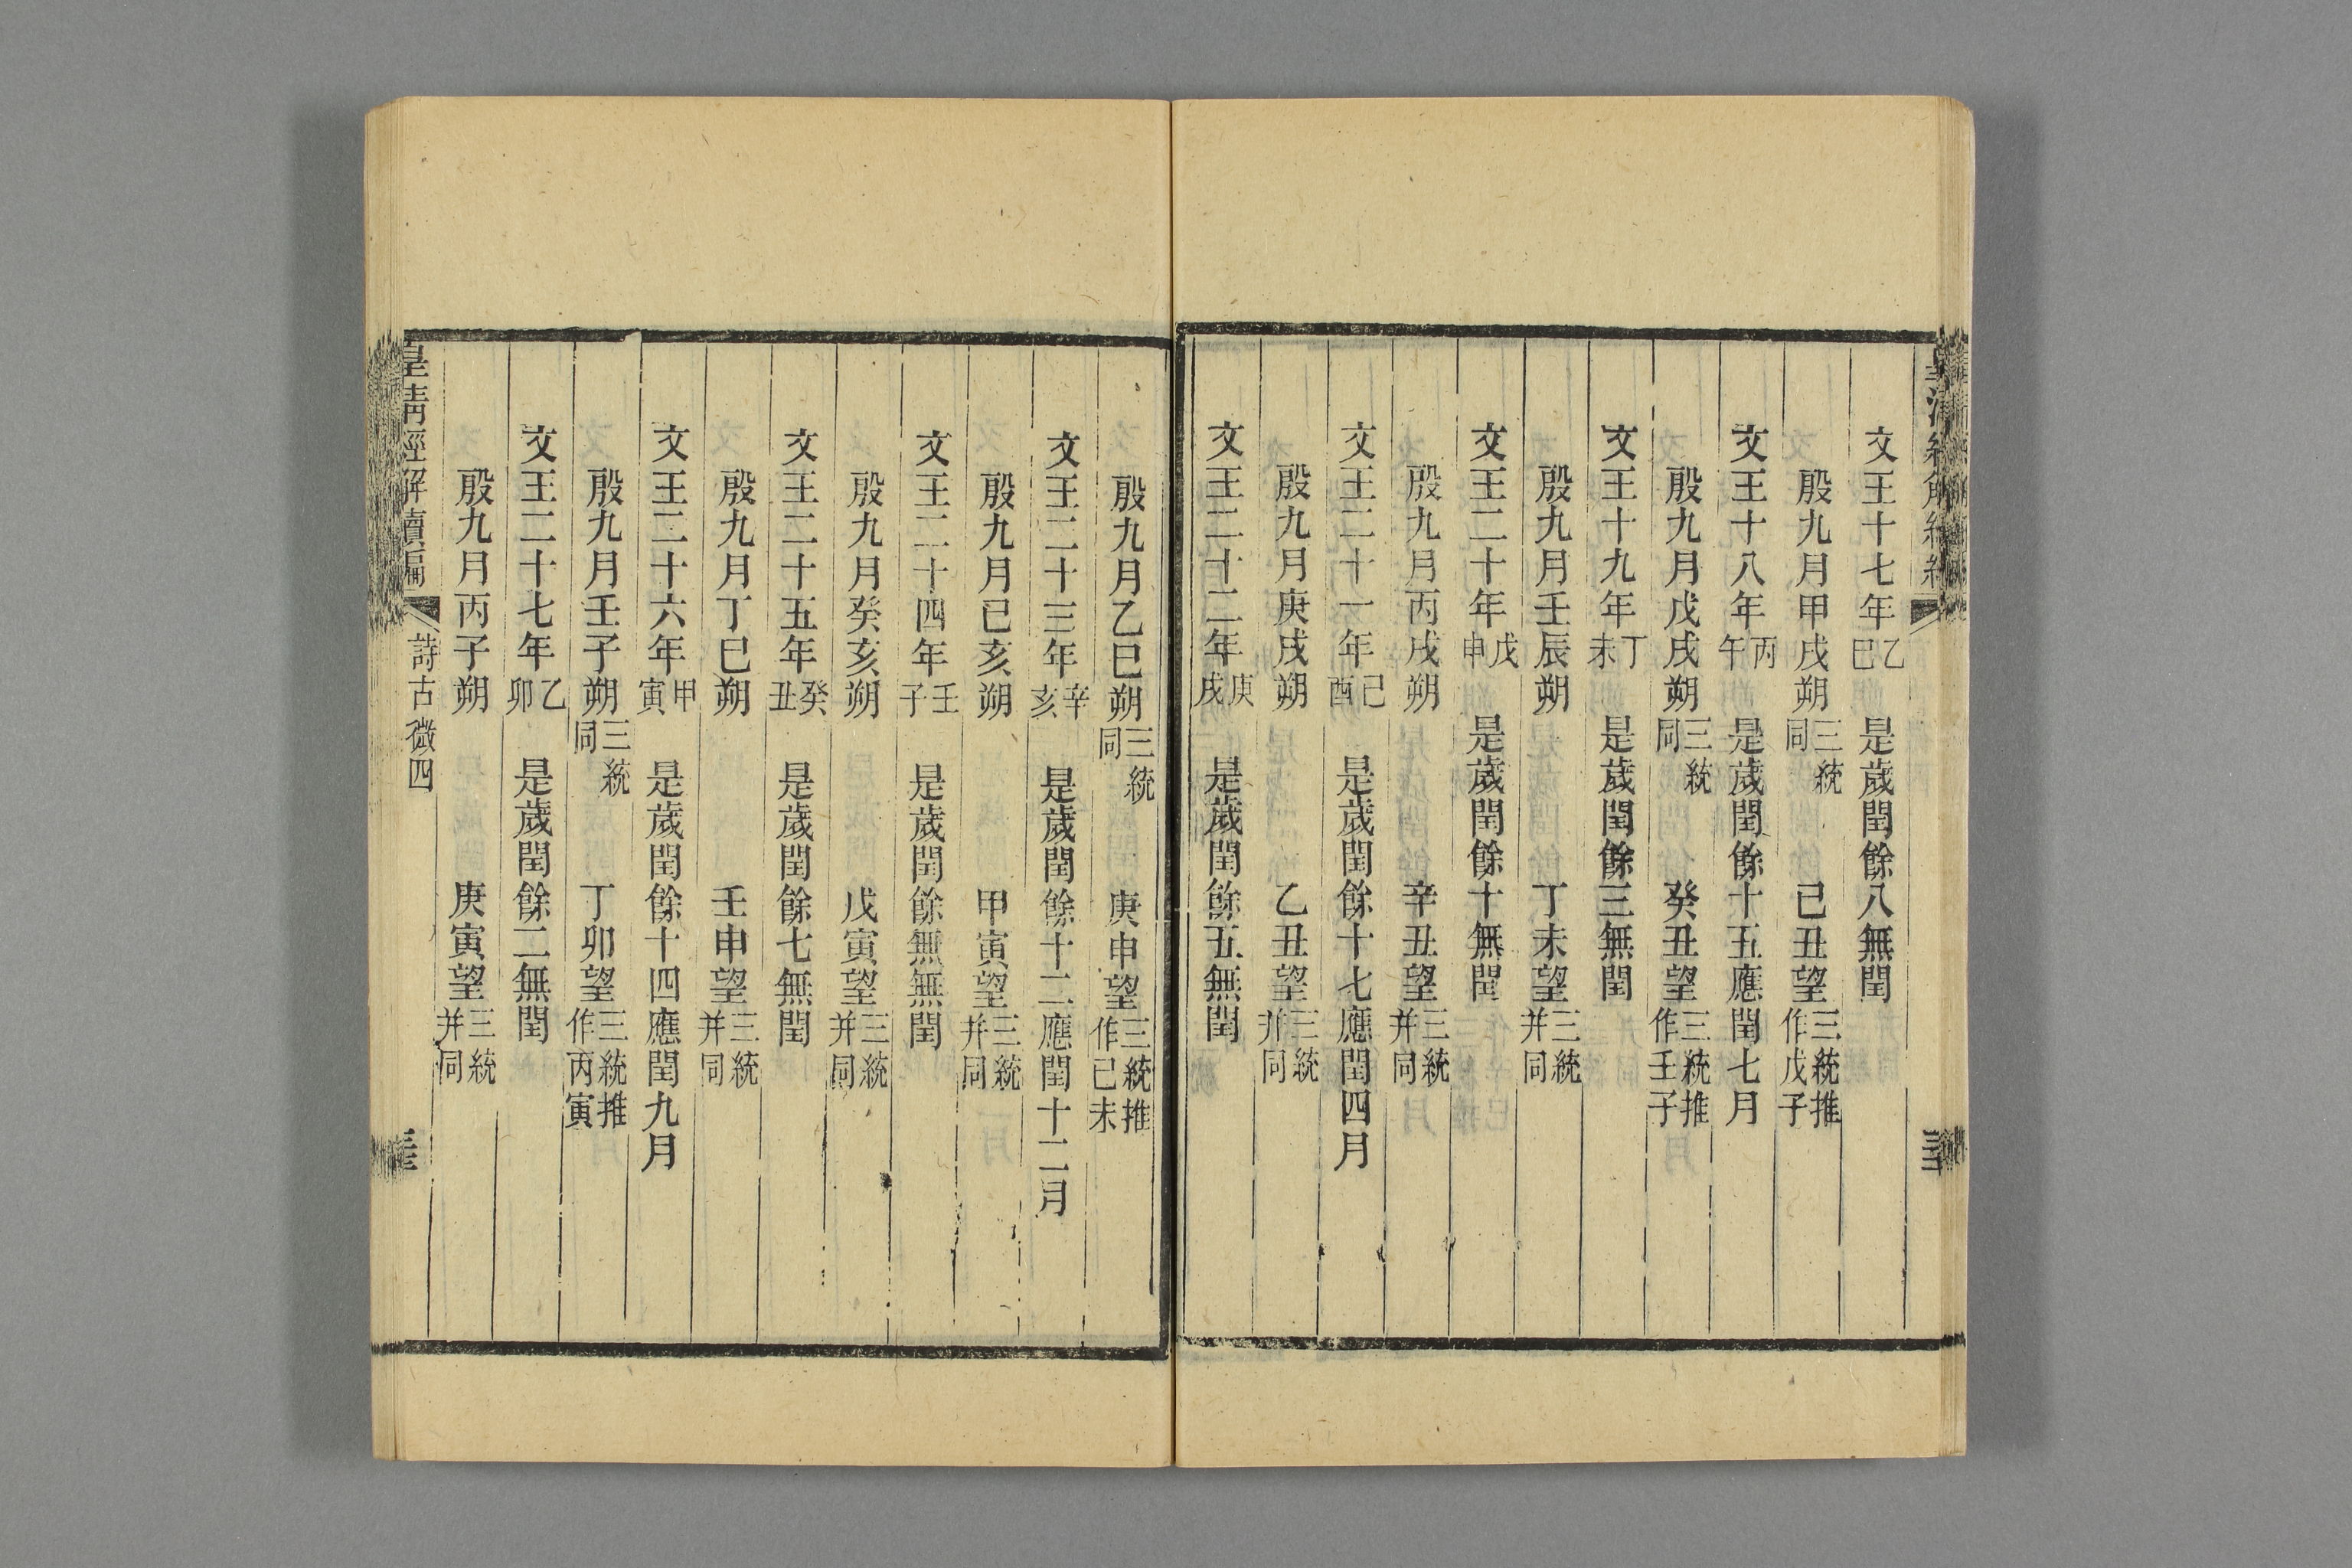 文王十七年乙巳　是歲閏餘八無閏
殷九月甲戌朔三統同　己丑望三統推作戊子
文王十八年丙午　是歲閏餘十五應閏七月
殷九月戊戌朔三統同　癸丑望三統推作壬子
文王十九年丁未　是歲閏餘三無閏
殷九月壬辰朔　丁未望三統并同
文王二十年戊申　是歲閏餘十無閏
殷九月丙戌朔　辛丑望三統并同
文王二十一年己酉　是歲閏餘十七應閏四月
殷九月庚戌朔　乙丑望三統并同
文王二十二年庚戌　是歲閏餘五無閏
殷九月乙巳朔三統同　庚申望三統推作已未
文王二十三年辛亥　是歲閏餘十二應閏十二月
殷九月已亥朔　甲寅望三統并同
文王二十四年壬子　是歲閏餘無無閏
殷九月癸亥朔　戊寅望三統并同
文王二十五年癸丑　是歲閏餘七無閏
殷九月丁巳朔　壬申望三統并同
文王二十六年甲寅　是歲閏餘十四應閏九月
殷九月壬子朔三統同　丁卯望三統推作丙寅
文王二十七年乙卯　是歲閏餘二無閏
殷九月丙子朔　庚寅望三統并同
皇清經解續編　詩古微四